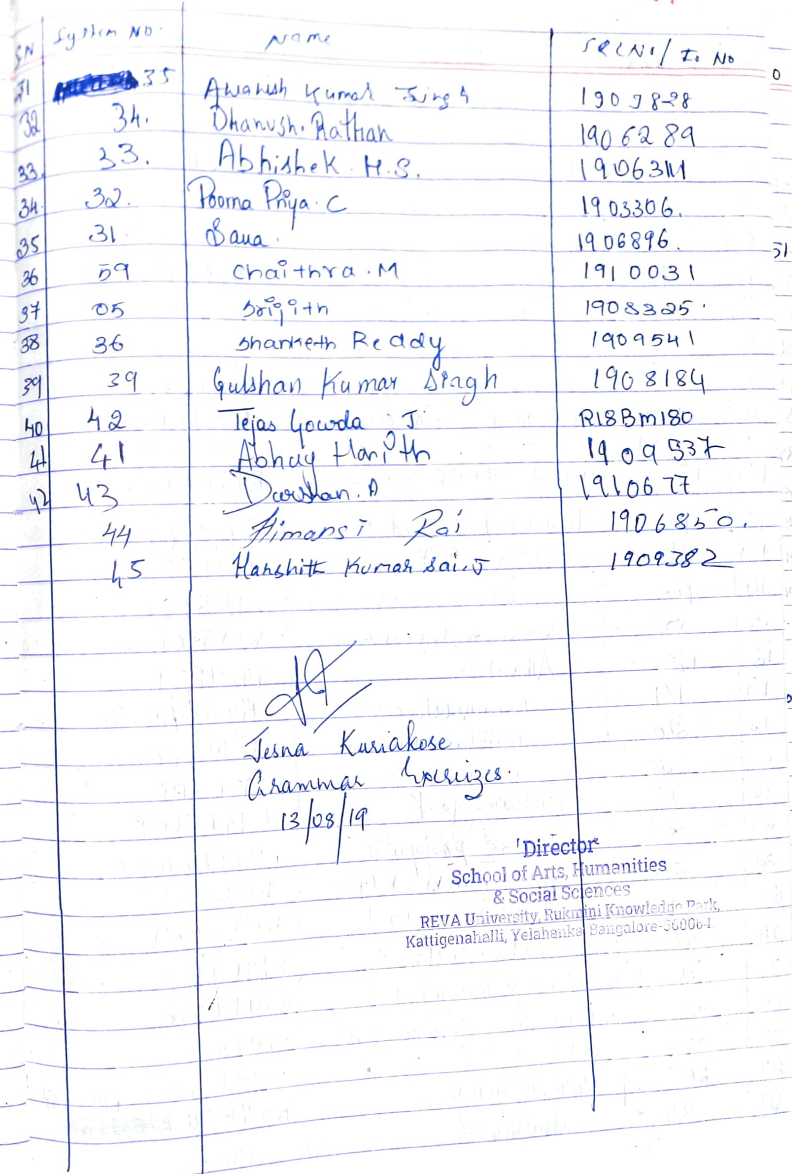 SN System No. Name SRLNo/ I. No
31 35 Awanish Kumar Singh 1909828
32 34. Dhanush. Rathan 1906289
33. 33. Abhishek. H.S.
34. 32. Poorna Priya. C 1903306.
35 31. Sana. 1906896.
36 59 Chaithra. M 1910031
37 05 1908325.
38 36 Shanketh Reddy 1909541
39 39 Gulshan Kumar Singh 1908184
40 42 Tejas Gowda. J. R18BM180
41 41 Abhay Harith 1909537
42 43 Darshan. A 1910677
44 Himansi Rai 1906850.
45 Harshith Kumar Sai. J 1909382
Jesna Kuriakose
Grammar
13/08/19
Director
School of Arts, Humanities
& Social Sciences
REVA University, Rukmini Knowledge Park,
Kattigenahalli, Yelahanka Bangalore-560064